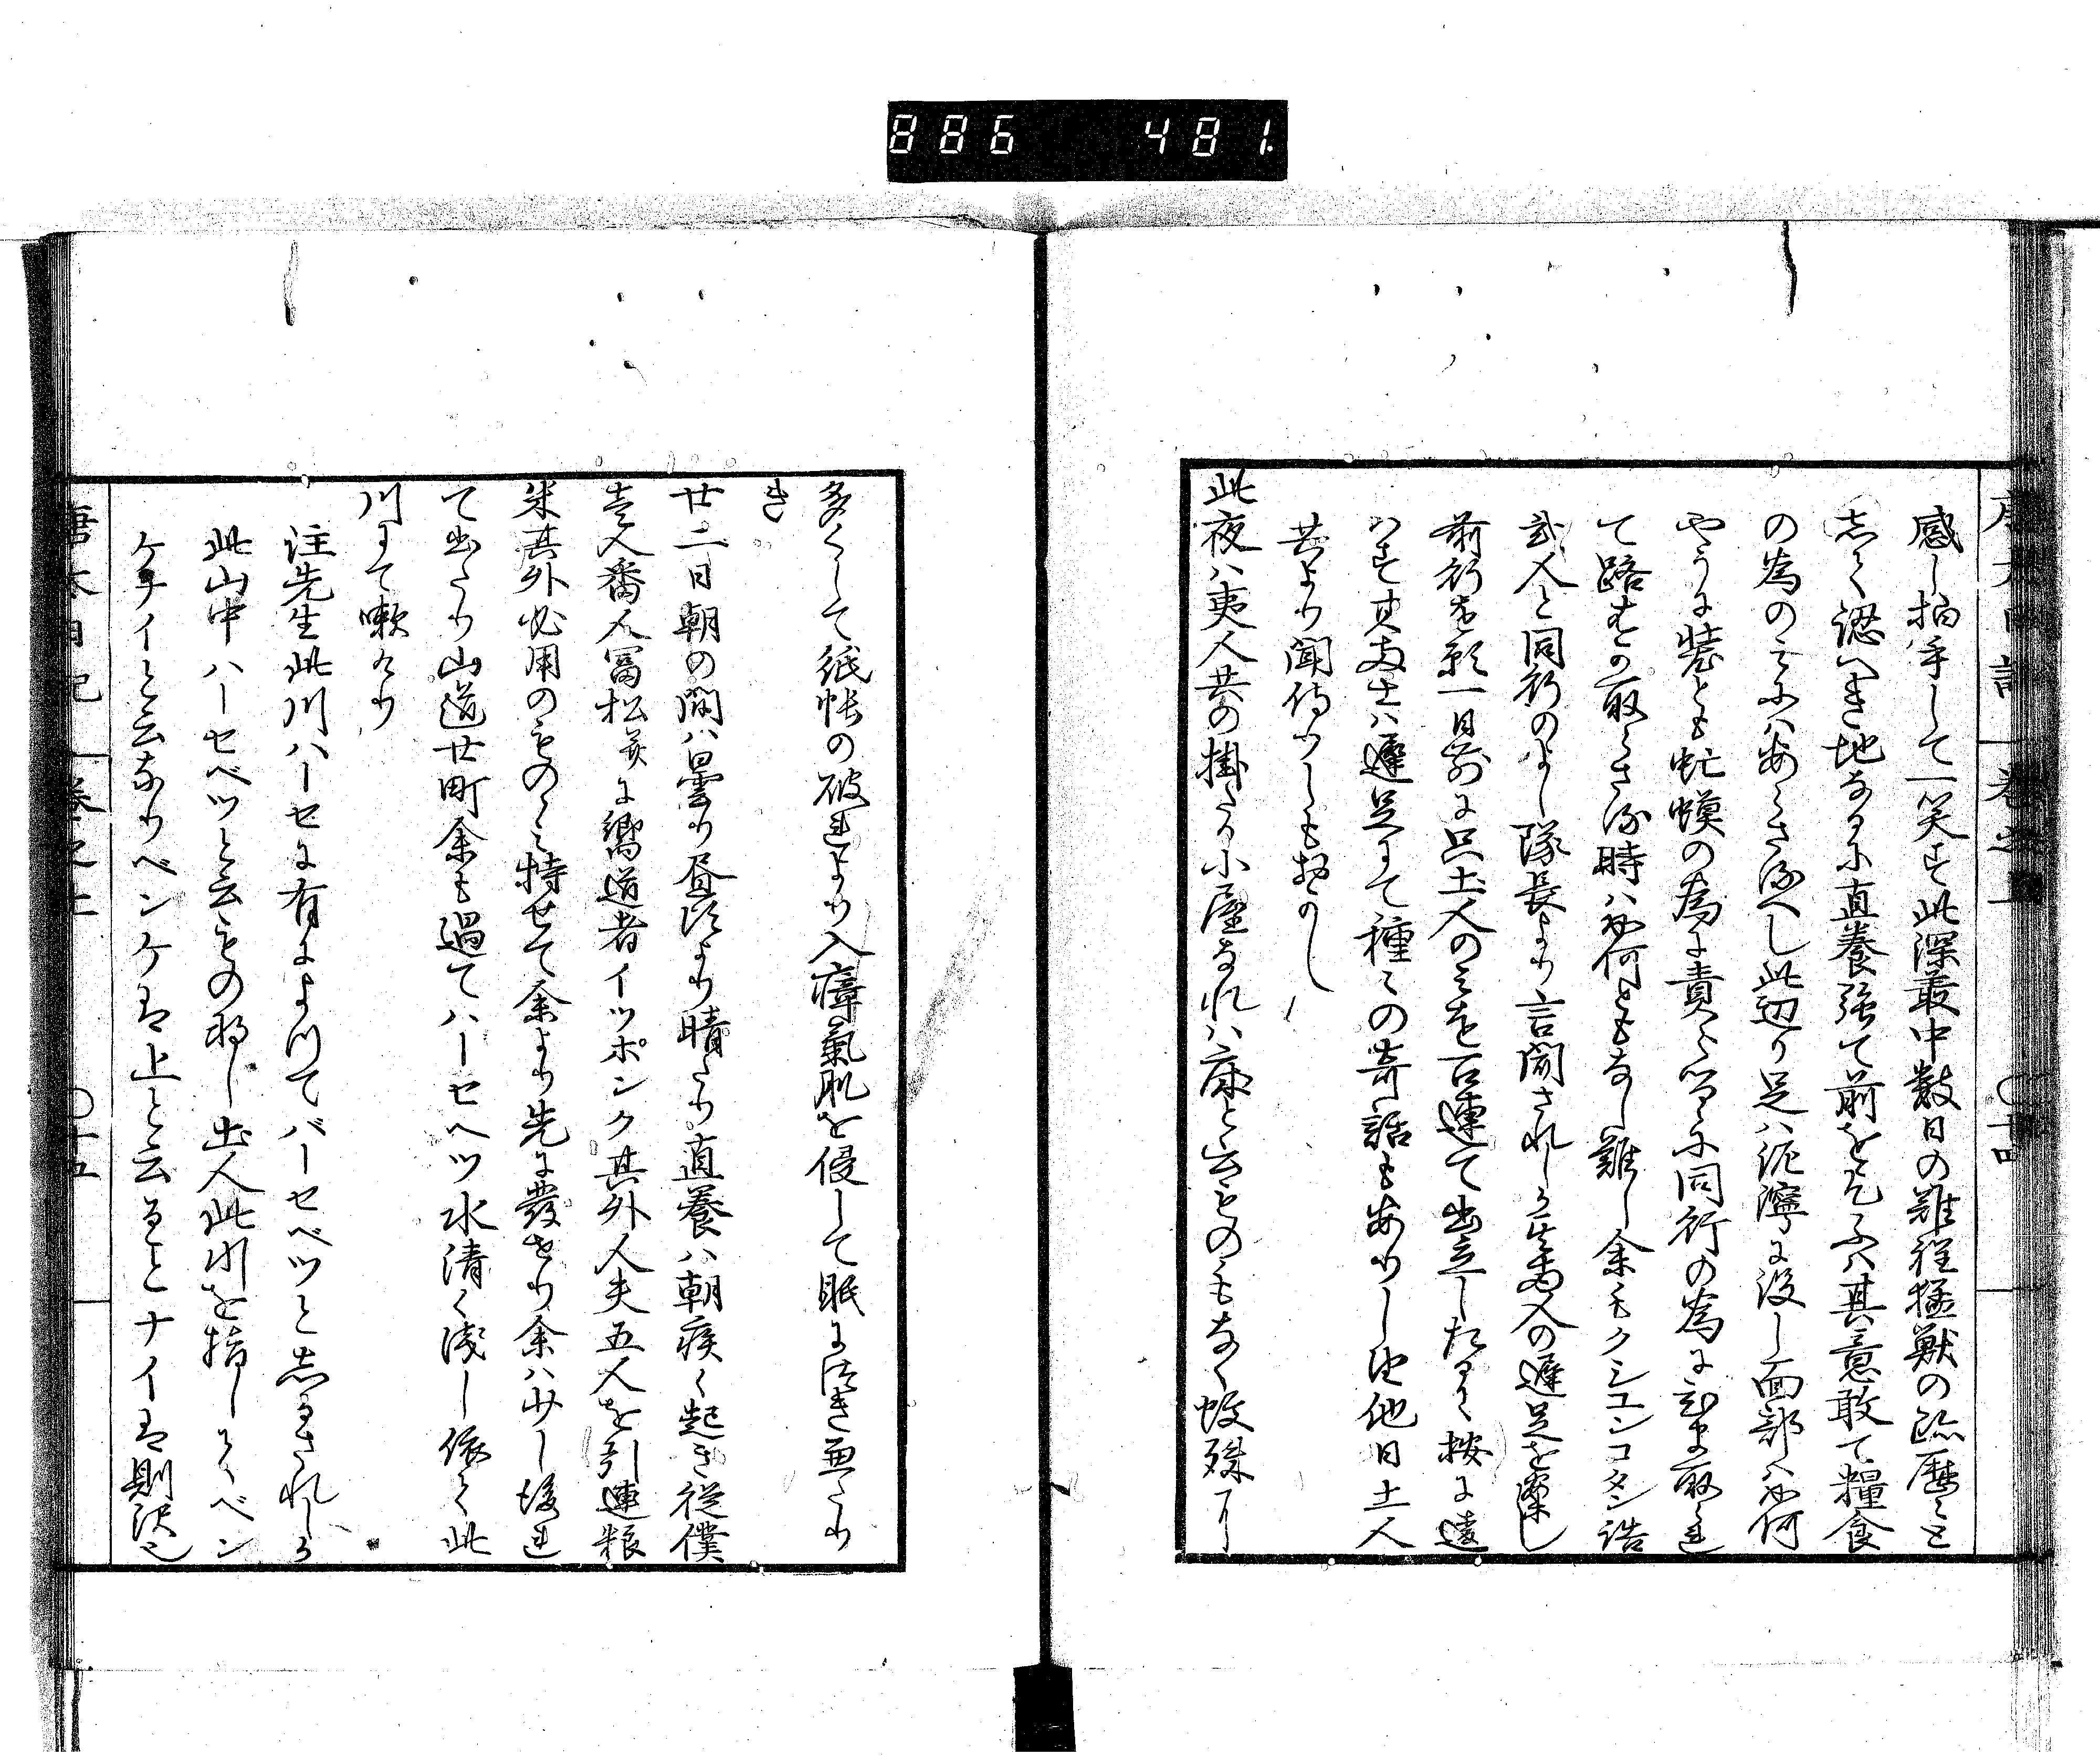 886 481.
感し拍手して一笑す此深叢中数日の難程猛獣の跡歴々と
志く認へき地なるに直養強て前を乞ふハ其意敢て糧食
の為のミにハあらさるへし此辺り足ハ泥濘に没し面部ハ如何
やうに装とも虻蟆の為に責らるゝに同行の為に取れ
て路をの取らさる時ハ如何ともなし難し余もクシユンコタン詰
武人と同行のよし隊長より言聞されしか其人の遅足を察し
前行を願一日前に只土人のミを召連て出立したるに按に違
ハす其両士ハ遅足にて種々の奇話もありし由他日土人
共より聞侍りしも
此夜ハ夷人共の掛たる小屋なれハ床と云ものもなく蚊殊に
多くして紙帳の破れより入瘴氣肌を侵して眠に兼たり
き
廿二日朝の間ハ曇り昼頃より晴たり直養ハ朝疾く起き従僕
壱人番人冨松并に嚮道者イツポンク其外人夫五人を引連粮
米其外必用のものミ持せて余より先に發せり余ハ少し後れ
て出たり山道廿町余も過てハーセヘツ水清く浅し依て此
川にて嗽たり
注先生此川ハーセに有によつてバーセベツと志るされしか
此山中ハーセベツと云もの那し土人此川を指してベン
ケナイと云なりベンケは上と云ことナイは則沢也
唐太日記 巻之上 〇十四
唐太日記 巻之上 〇十五